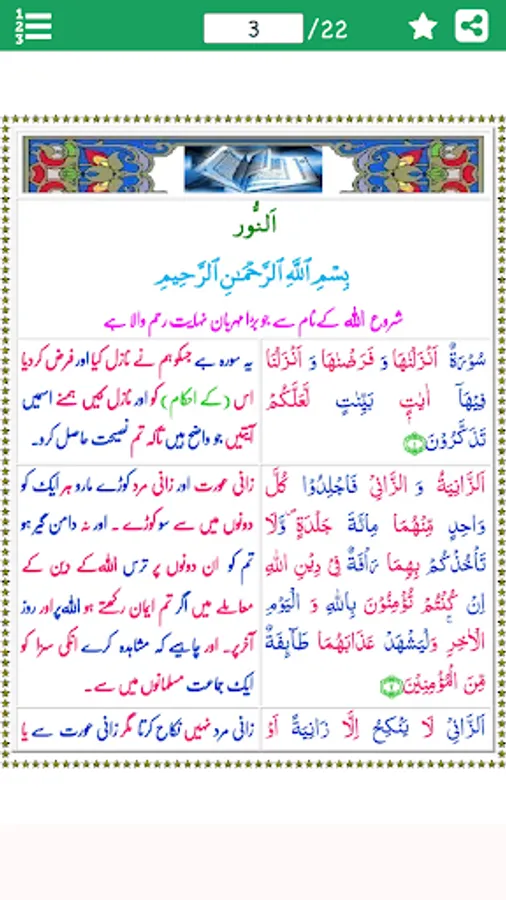 1
2
3
3 /22
اَلنُّور
بِسْمِ ٱللَّهِ ٱلرَّحْمَٰنِ ٱلرَّحِيمِ
شروع اللہ کے نام سے جو بڑا مہربان نہایت رحم والا ہے
سُوْرَةٌ اَنْزَلْنٰهَا وَ فَرَضْنٰهَا وَ اَنْزَلْنَا
فِيْهَاۤ اٰيٰتٍۭ بَيِّنٰتٍ لَّعَلَّكُمْ
تَذَكَّرُوْنَ ۝۱
یہ سورہ ہے جسکو ہم نے نازل کیا اور فرض کردیا
اس (کے احکام) کو اور نازل کیں ہمنے اسمیں
آیتیں جو واضح ہیں تاکہ تم نصیحت حاصل کرو۔
اَلزَّانِيَةُ وَ الزَّانِيْ فَاجْلِدُوْا كُلَّ
وَاحِدٍ مِّنْهُمَا مِائَةَ جَلْدَةٍ۪ وَّلَا
تَاْخُذْكُمْ بِهِمَا رَاْفَةٌ فِيْ دِيْنِ اللّٰهِ
اِنْ كُنْتُمْ تُؤْمِنُوْنَ بِاللّٰهِ وَ الْيَوْمِ
الْاٰخِرِ ۚ وَلْيَشْهَدْ عَذَابَهُمَا طَآىِٕفَةٌ
مِّنَ الْمُؤْمِنِيْنَ ۝۲
زانی عورت اور زانی مرد کوڑے مارو ہر ایک کو
دونوں میں سے سو کوڑے ۔ اور نہ دامن گیر ہو
تم کو ان دونوں پر ترس اللہ کے دین کے
معاملے میں اگر تم ایمان رکھتے ہو اللہ پر اور روز
آخر پر۔ اور چاہیے کہ مشاہدہ کرے انکی سزا کو
ایک جماعت مسلمانوں میں سے ۔
اَلزَّانِيْ لَا يَنْكِحُ اِلَّا زَانِيَةً اَوْ
زانی مرد نہیں نکاح کرتا مگر زانی عورت سے یا